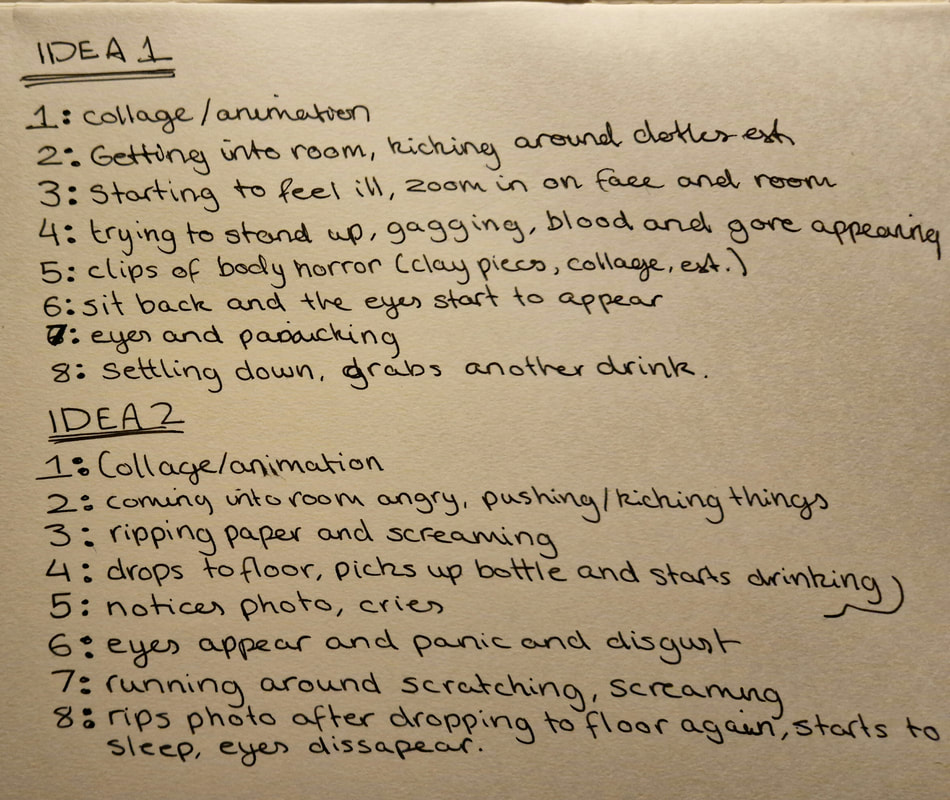 IDEA 1
1: collage/animation
2: Getting into room, kicking around clothes est
3: Starting to feel ill, zoom in on face and room
4: trying to stand up, gagging, blood and gore appearing
5: clips of body horror (clay piecs, collage, est.)
6: sit back and the eyes start to appear
7: eyes and
8: settling down, grabs another drink.
IDEA 2
1: Collage/animation
2: coming into room angry, pushing/kicking things
3: ripping paper and screaming
4: drops to floor, picks up bottle and starts drinking
5: notices photo, cries
6: eyes appear and panic and disgust
7: running around scratching, screaming
8: rips photo after dropping to floor again, starts to
sleep, eyes dissapear.